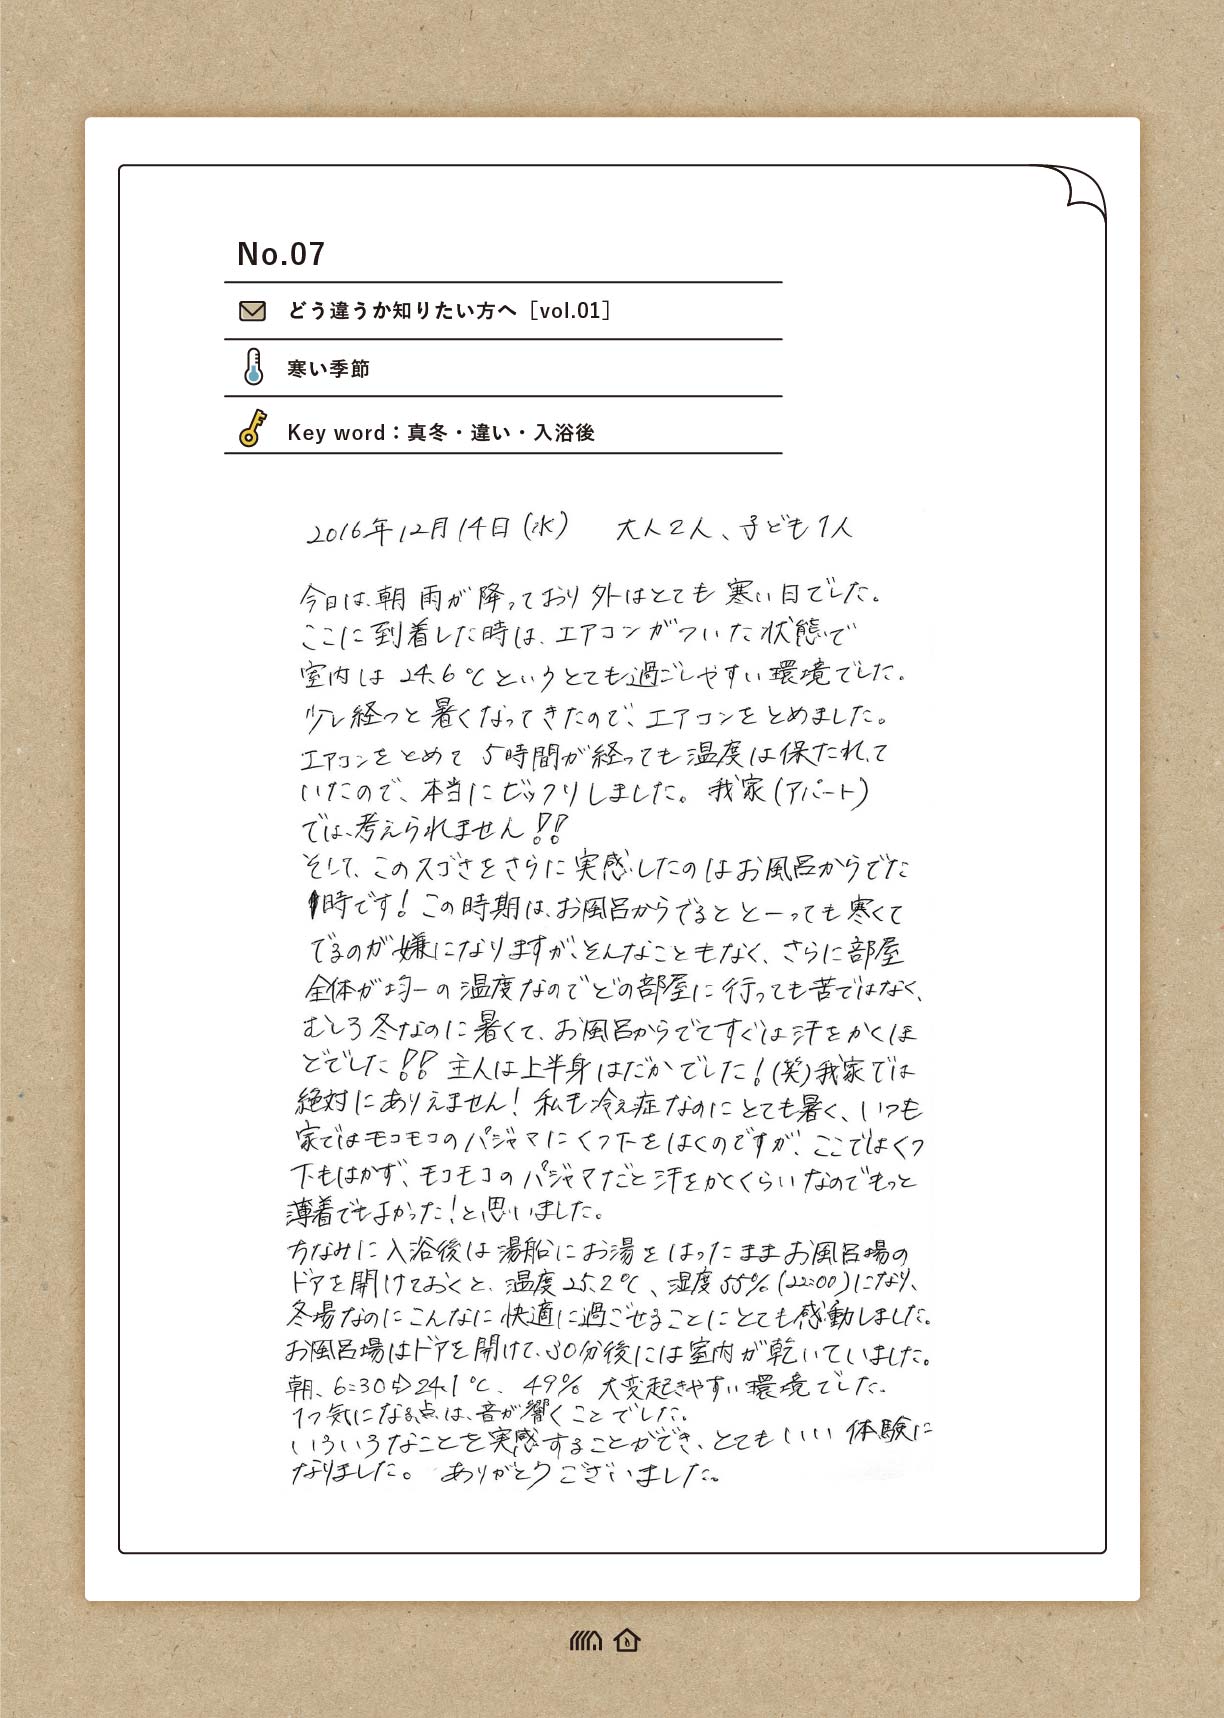 No.07
どう違うか知りたい方へ［vol.01］
寒い季節
Key word：真冬・違い・入浴後
2016年12月14日(水)　大人2人、子ども1人
今日は、朝 雨が降っており外はとても寒い日でした。
ここに到着した時は、エアコンがついた状態で
室内は 24.6℃というとても過ごしやすい環境でした。
少し経つと暑くなってきたので、エアコンをとめました。
エアコンをとめて 5時間が経っても温度は保たれて
いたので、本当にビックリしました。我家(アパート)
では、考えられません!!
そして、このスゴさをさらに実感したのはお風呂からでた
時です！この時期は、お風呂からでるととーっても寒くて
でるのが嫌になりますが、そんなこともなく、さらに部屋
全体が均一の温度なのでどの部屋に行っても苦ではなく、
むしろ冬なのに暑くて、お風呂からでてすぐは汗をかくほ
どでした!! 主人は上半身はだかでした！(笑)我家では
絶対にありえません！私も冷え症なのにとても暑く、いつも
家ではモコモコのパジャマにくつ下をはくのですが、ここではくつ
下もはかず、モコモコのパジャマだと汗をかくくらいなのでもっと
薄着でもよかった！と思いました。
ちなみに入浴後は湯船にお湯をはったままお風呂場の
ドアを開けておくと、温度25.2℃、湿度55%(22:00)になり、
冬場なのにこんなに快適に過ごせることにとても感動しました。
お風呂場はドアを開けて、30分後には室内が乾いていました。
朝、6:30⇨24.1℃、49% 大変起きやすい環境でした。
1つ気になる点は、音が響くことでした。
いろいろなことを実感することができ、とてもいい体験に
なりました。ありがとうございました。